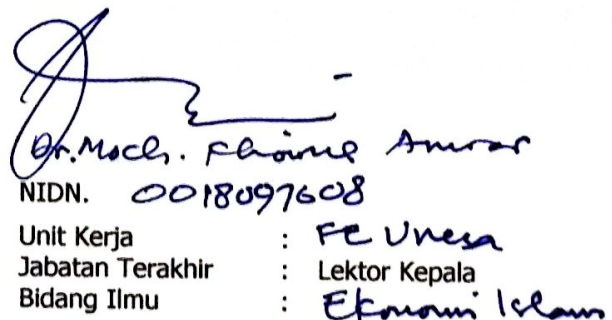 Dr. Moch. Khoirul Anwar
NIDN. 0018097608
Unit Kerja : FE Unesa
Jabatan Terakhir : Lektor Kepala
Bidang Ilmu : Ekonomi Islam